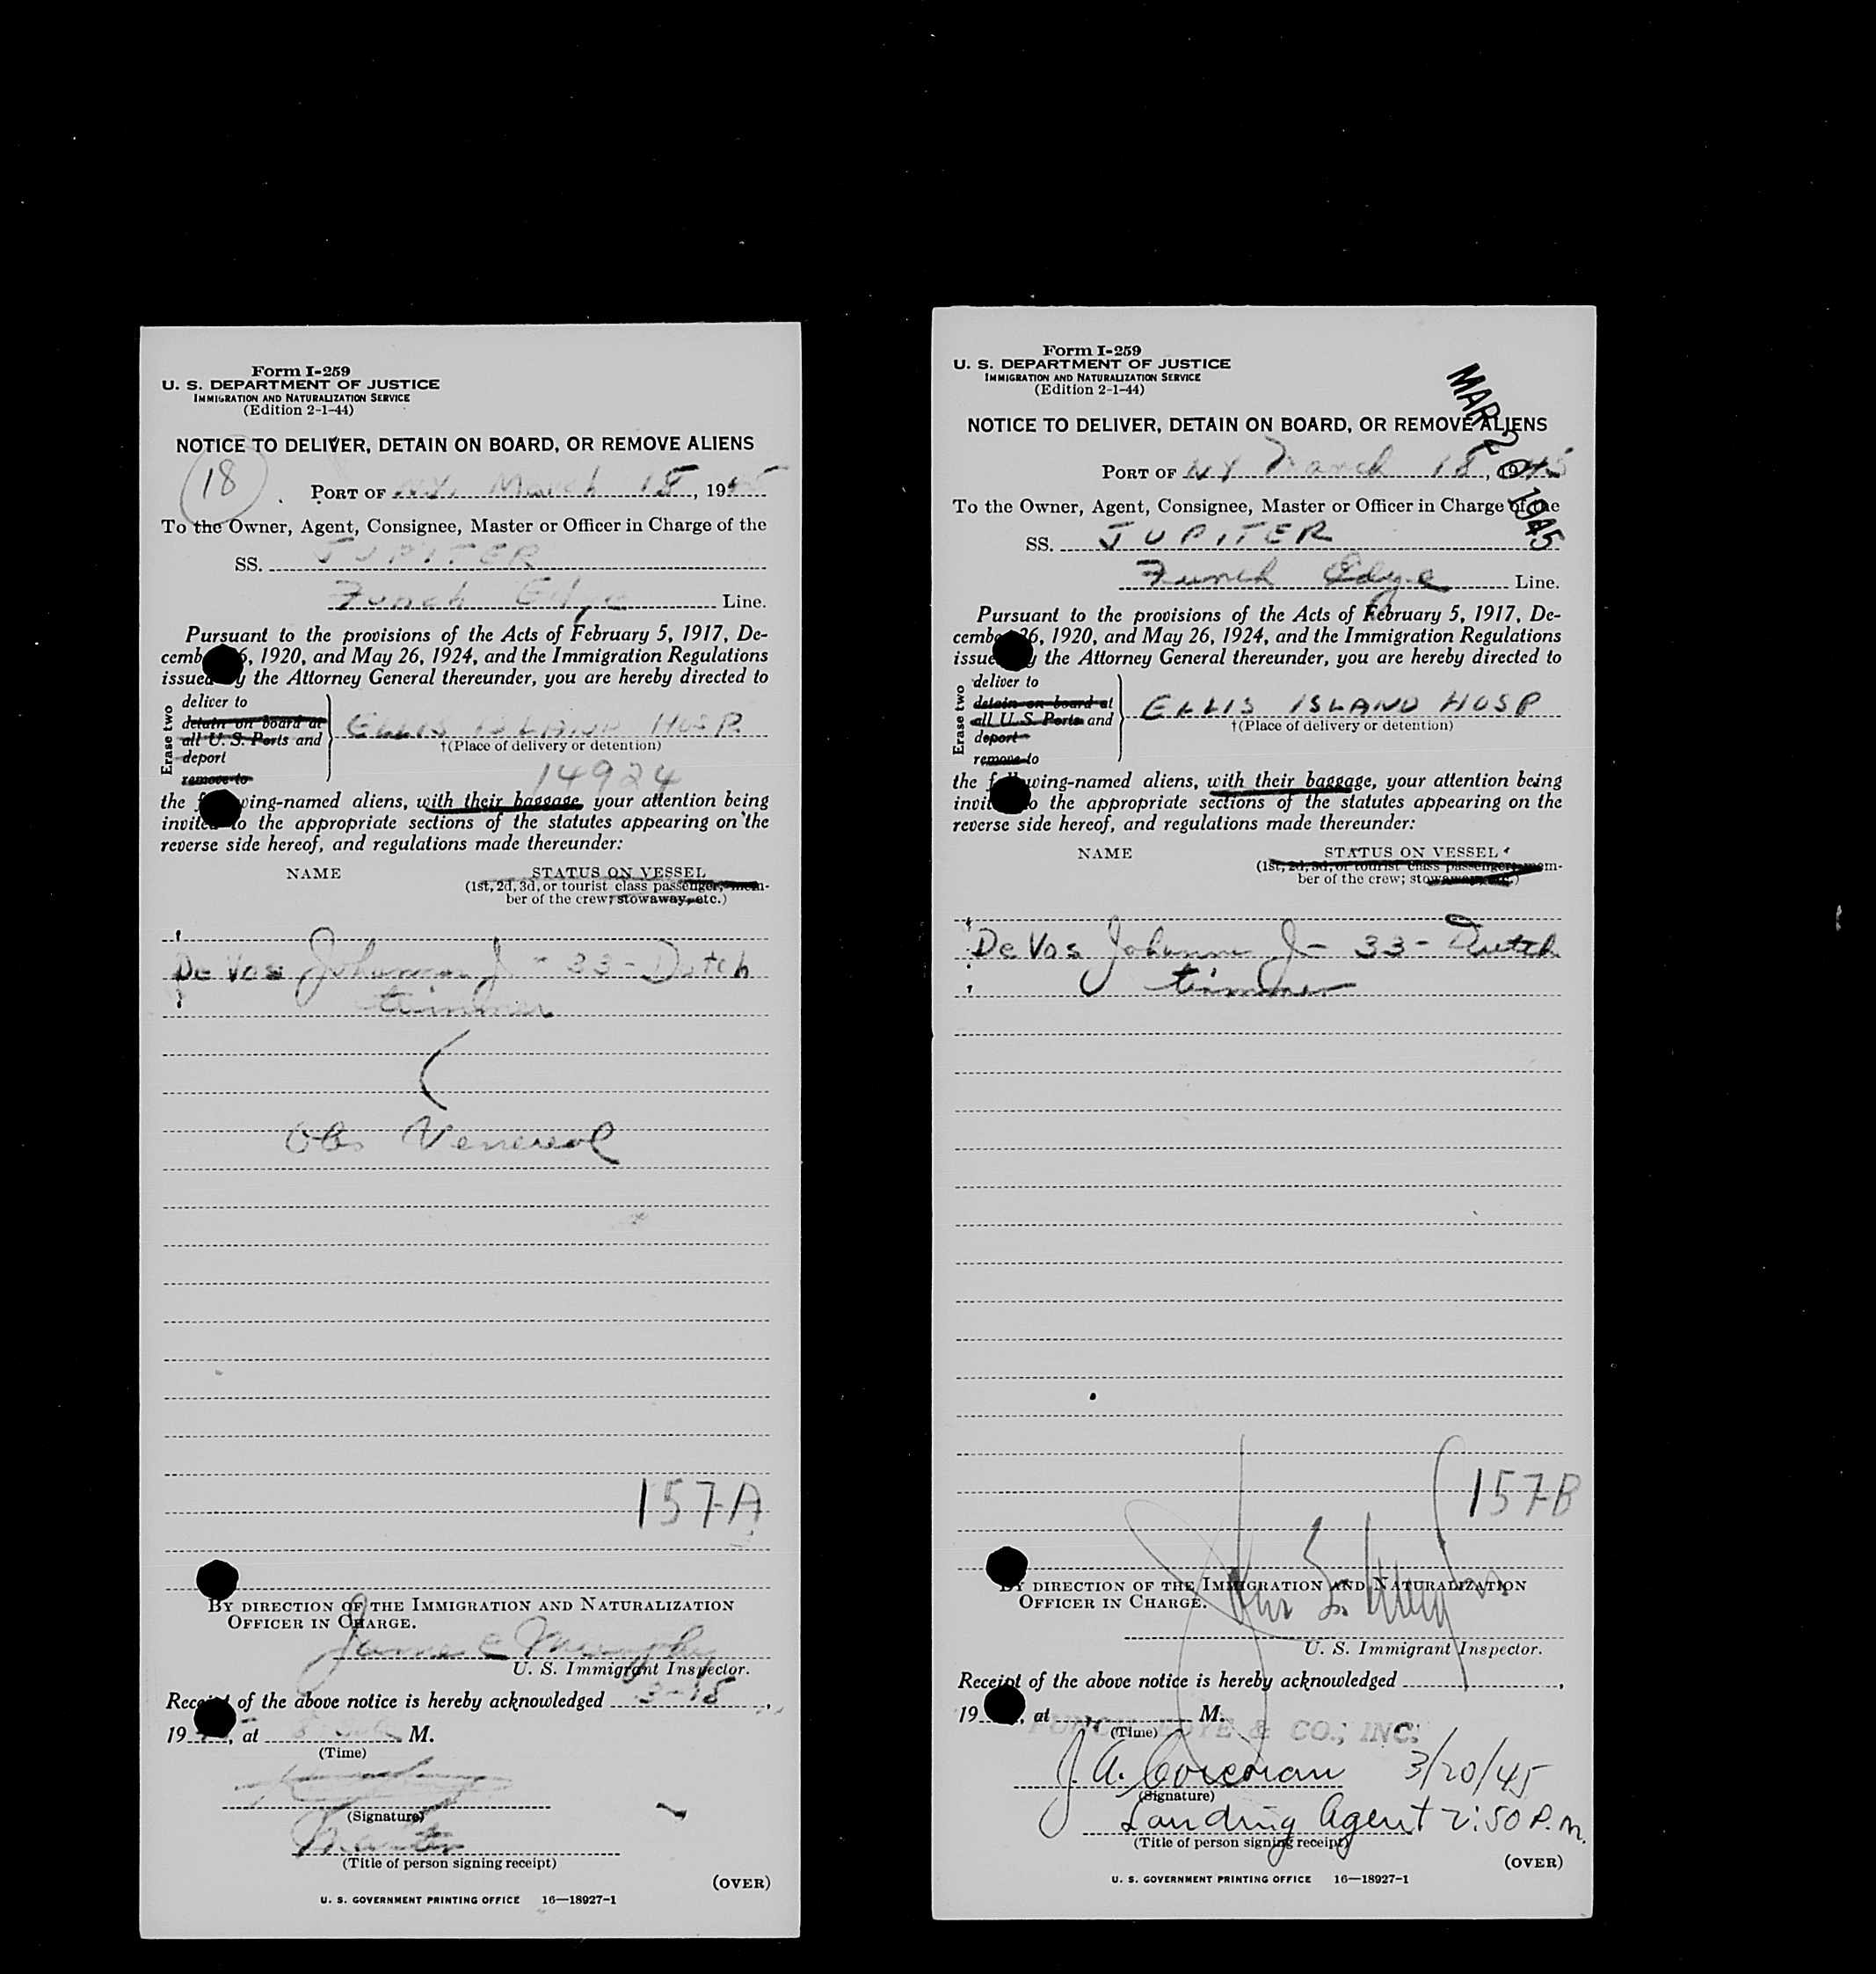 Form I-259
U. S. DEPARTMENT OF JUSTICE
IMMIGRATION AND NATURALIZATION SERVICE
(Edition 2-1-44)
NOTICE TO DELIVER, DETAIN ON BOARD, OR REMOVE ALIENS
18
PORT OF N.Y. March 18, 1945
To the Owner, Agent, Consignee, Master or Officer in Charge of the
SS. JUPITER
Funch Edye Line.
Pursuant to the provisions of the Acts of February 5, 1917, De-
cemb 6, 1920, and May 26, 1924, and the Immigration Regulations
issued y the Attorney General thereunder, you are hereby directed to
Erase two
deliver to
detain on board at
all U. S. Ports and
deport
remove to
ELLIS ISLAND HOSP.
†(Place of delivery or detention)
14924
the f wing-named aliens, with their baggage, your attention being
invited to the appropriate sections of the statutes appearing on the
reverse side hereof, and regulations made thereunder:
NAME STATUS ON VESSEL
(1st, 2d, 3d, or tourist class passenger, mem-
ber of the crew; stowaway, etc.)
De Vos Johannes J - 33 - Dutch
trimmer
Obs Venereal
157-A
BY DIRECTION OF THE IMMIGRATION AND NATURALIZATION
OFFICER IN CHARGE.
James E Murphy
U. S. Immigrant Inspector.
Receipt of the above notice is hereby acknowledged 3-18,
19 , at M.
(Time)
(Signature)
Master
(Title of person signing receipt)
(OVER)
U. S. GOVERNMENT PRINTING OFFICE 16—18927-1
Form I-259
U. S. DEPARTMENT OF JUSTICE
IMMIGRATION AND NATURALIZATION SERVICE
(Edition 2-1-44)
MAR 20 1945
NOTICE TO DELIVER, DETAIN ON BOARD, OR REMOVE ALIENS
PORT OF NY March 18, 1945
To the Owner, Agent, Consignee, Master or Officer in Charge of the
SS. JUPITER
Funch Edye Line.
Pursuant to the provisions of the Acts of February 5, 1917, De-
cembe 26, 1920, and May 26, 1924, and the Immigration Regulations
issued y the Attorney General thereunder, you are hereby directed to
Erase two
deliver to
detain on board at
all U. S. Ports and
deport
remove to
ELLIS ISLAND HOSP
†(Place of delivery or detention)
the f wing-named aliens, with their baggage, your attention being
invit o the appropriate sections of the statutes appearing on the
reverse side hereof, and regulations made thereunder:
NAME STATUS ON VESSEL
(1st, 2d, 3d, or tourist class passenger; mem-
ber of the crew; stowaway, etc.)
De Vos Johannes J - 33 - Dutch
trimmer
157-B
BY DIRECTION OF THE IMMIGRATION AND NATURALIZATION
OFFICER IN CHARGE.
U. S. Immigrant Inspector.
Receipt of the above notice is hereby acknowledged ,
19 , at M.
(Time)
FUNCH EDYE & CO., INC.
J. A. Corcoran 3/20/45
(Signature)
Landing Agent 2:50 P.M.
(Title of person signing receipt)
(OVER)
U. S. GOVERNMENT PRINTING OFFICE 16—18927-1